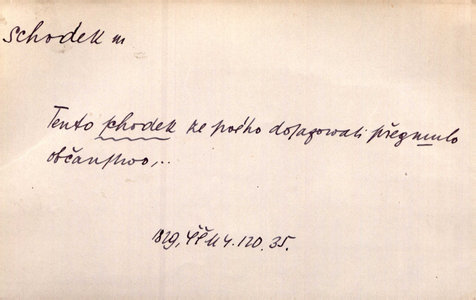 schodek m
Tento schodek ze svého dosazowati přegmulo
občanstwo,..
1829, ČČM 4.120.35.